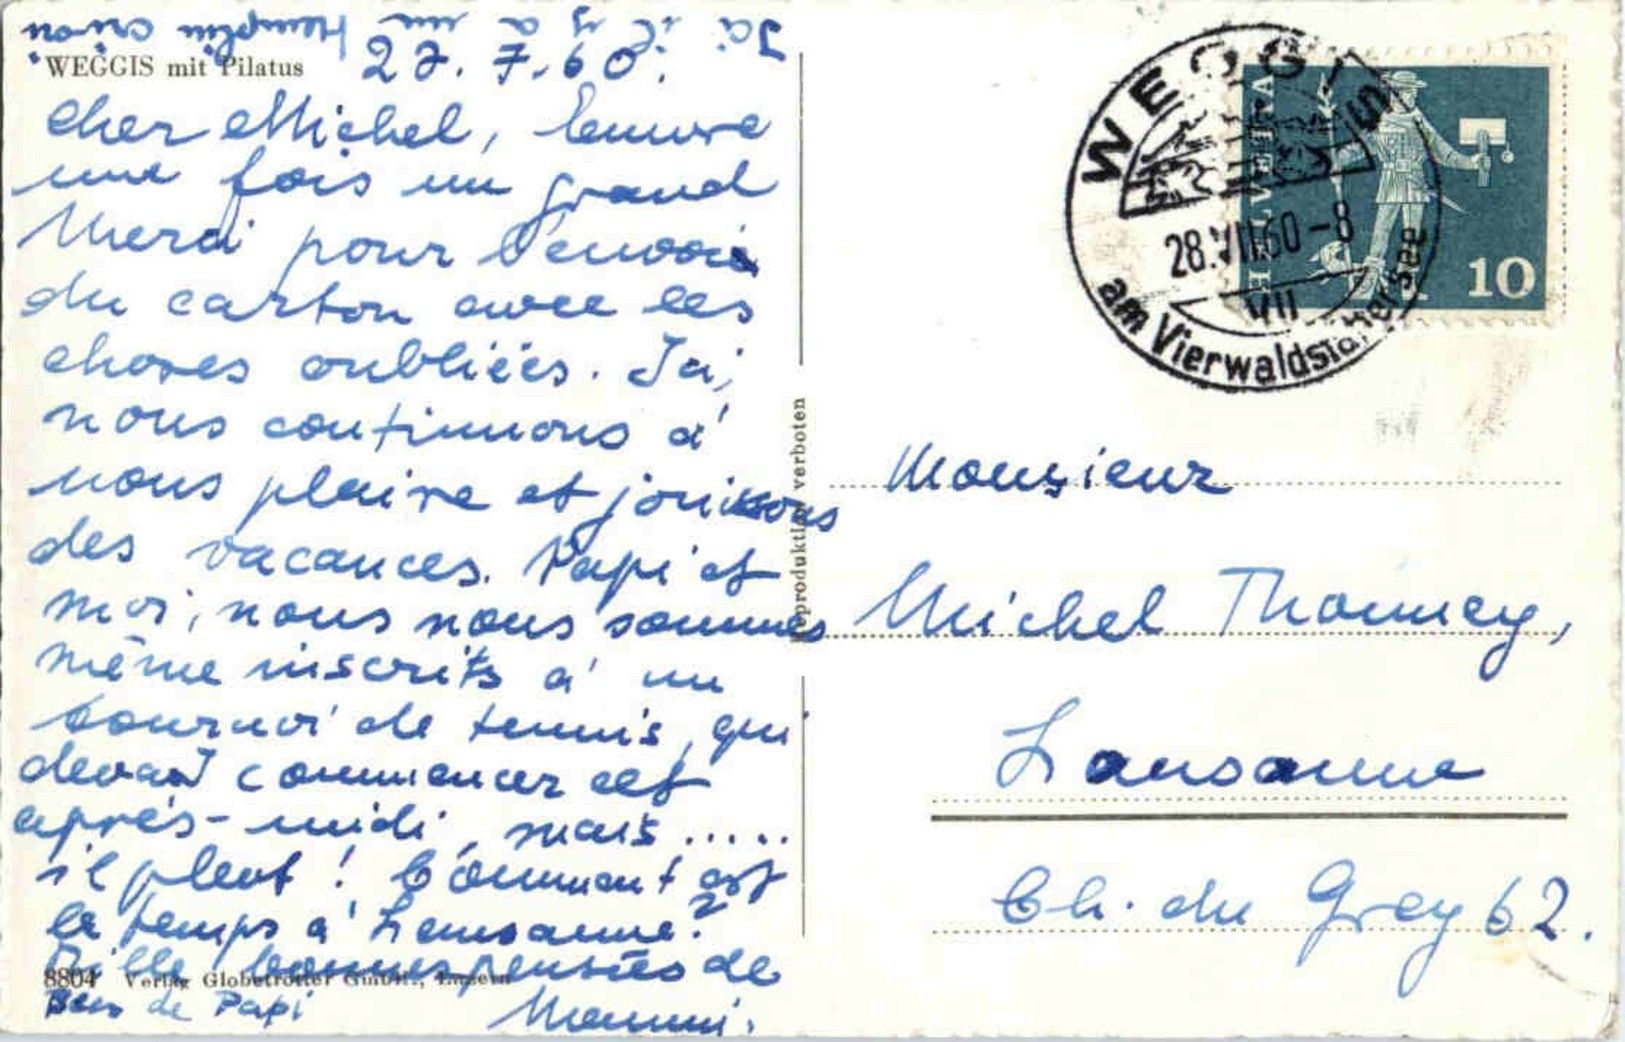 WEGGIS mit Pilatus
27.7.60.
Cher Michel, encore
une fois un grand
Merci pour l'envoie
du carton avec les
choses oubliées. Ici,
nous continuons à
nous plaire et jouissons
des vacances. Papi et
moi, nous nous sommes
même inscrits à un
tournoi de tennis, qui
devait commencer cet
après-midi, mais.....
il pleut! Comment est
le temps à Lausanne?
Mille bonnes pensées de
8804 Verlag Globetrotter GmbH., Luzern
de Papi
Mammi.
Ici il y a un
Reproduktion verboten
WEGGIS
28.VII.60-8
VII
am Vierwaldstättersee
HELVETIA
10
Monsieur
Michel Thomney,
Lausanne
Ch. du Grey 62.